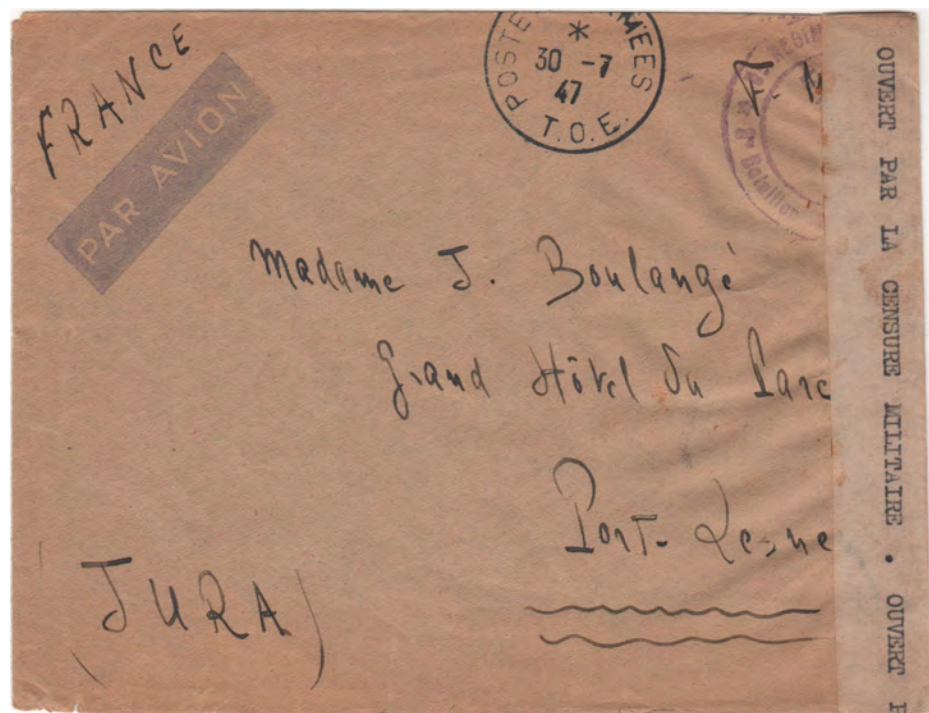 FRANCE
PAR AVION
POSTE MEES
*
30 -7
47
T.O.E.
Bataillon
Madame J. Boulangé
Grand Hôtel du Parc
Port-Lesne
(JURA)
OUVERT PAR LA CENSURE MILITAIRE • OUVERT P